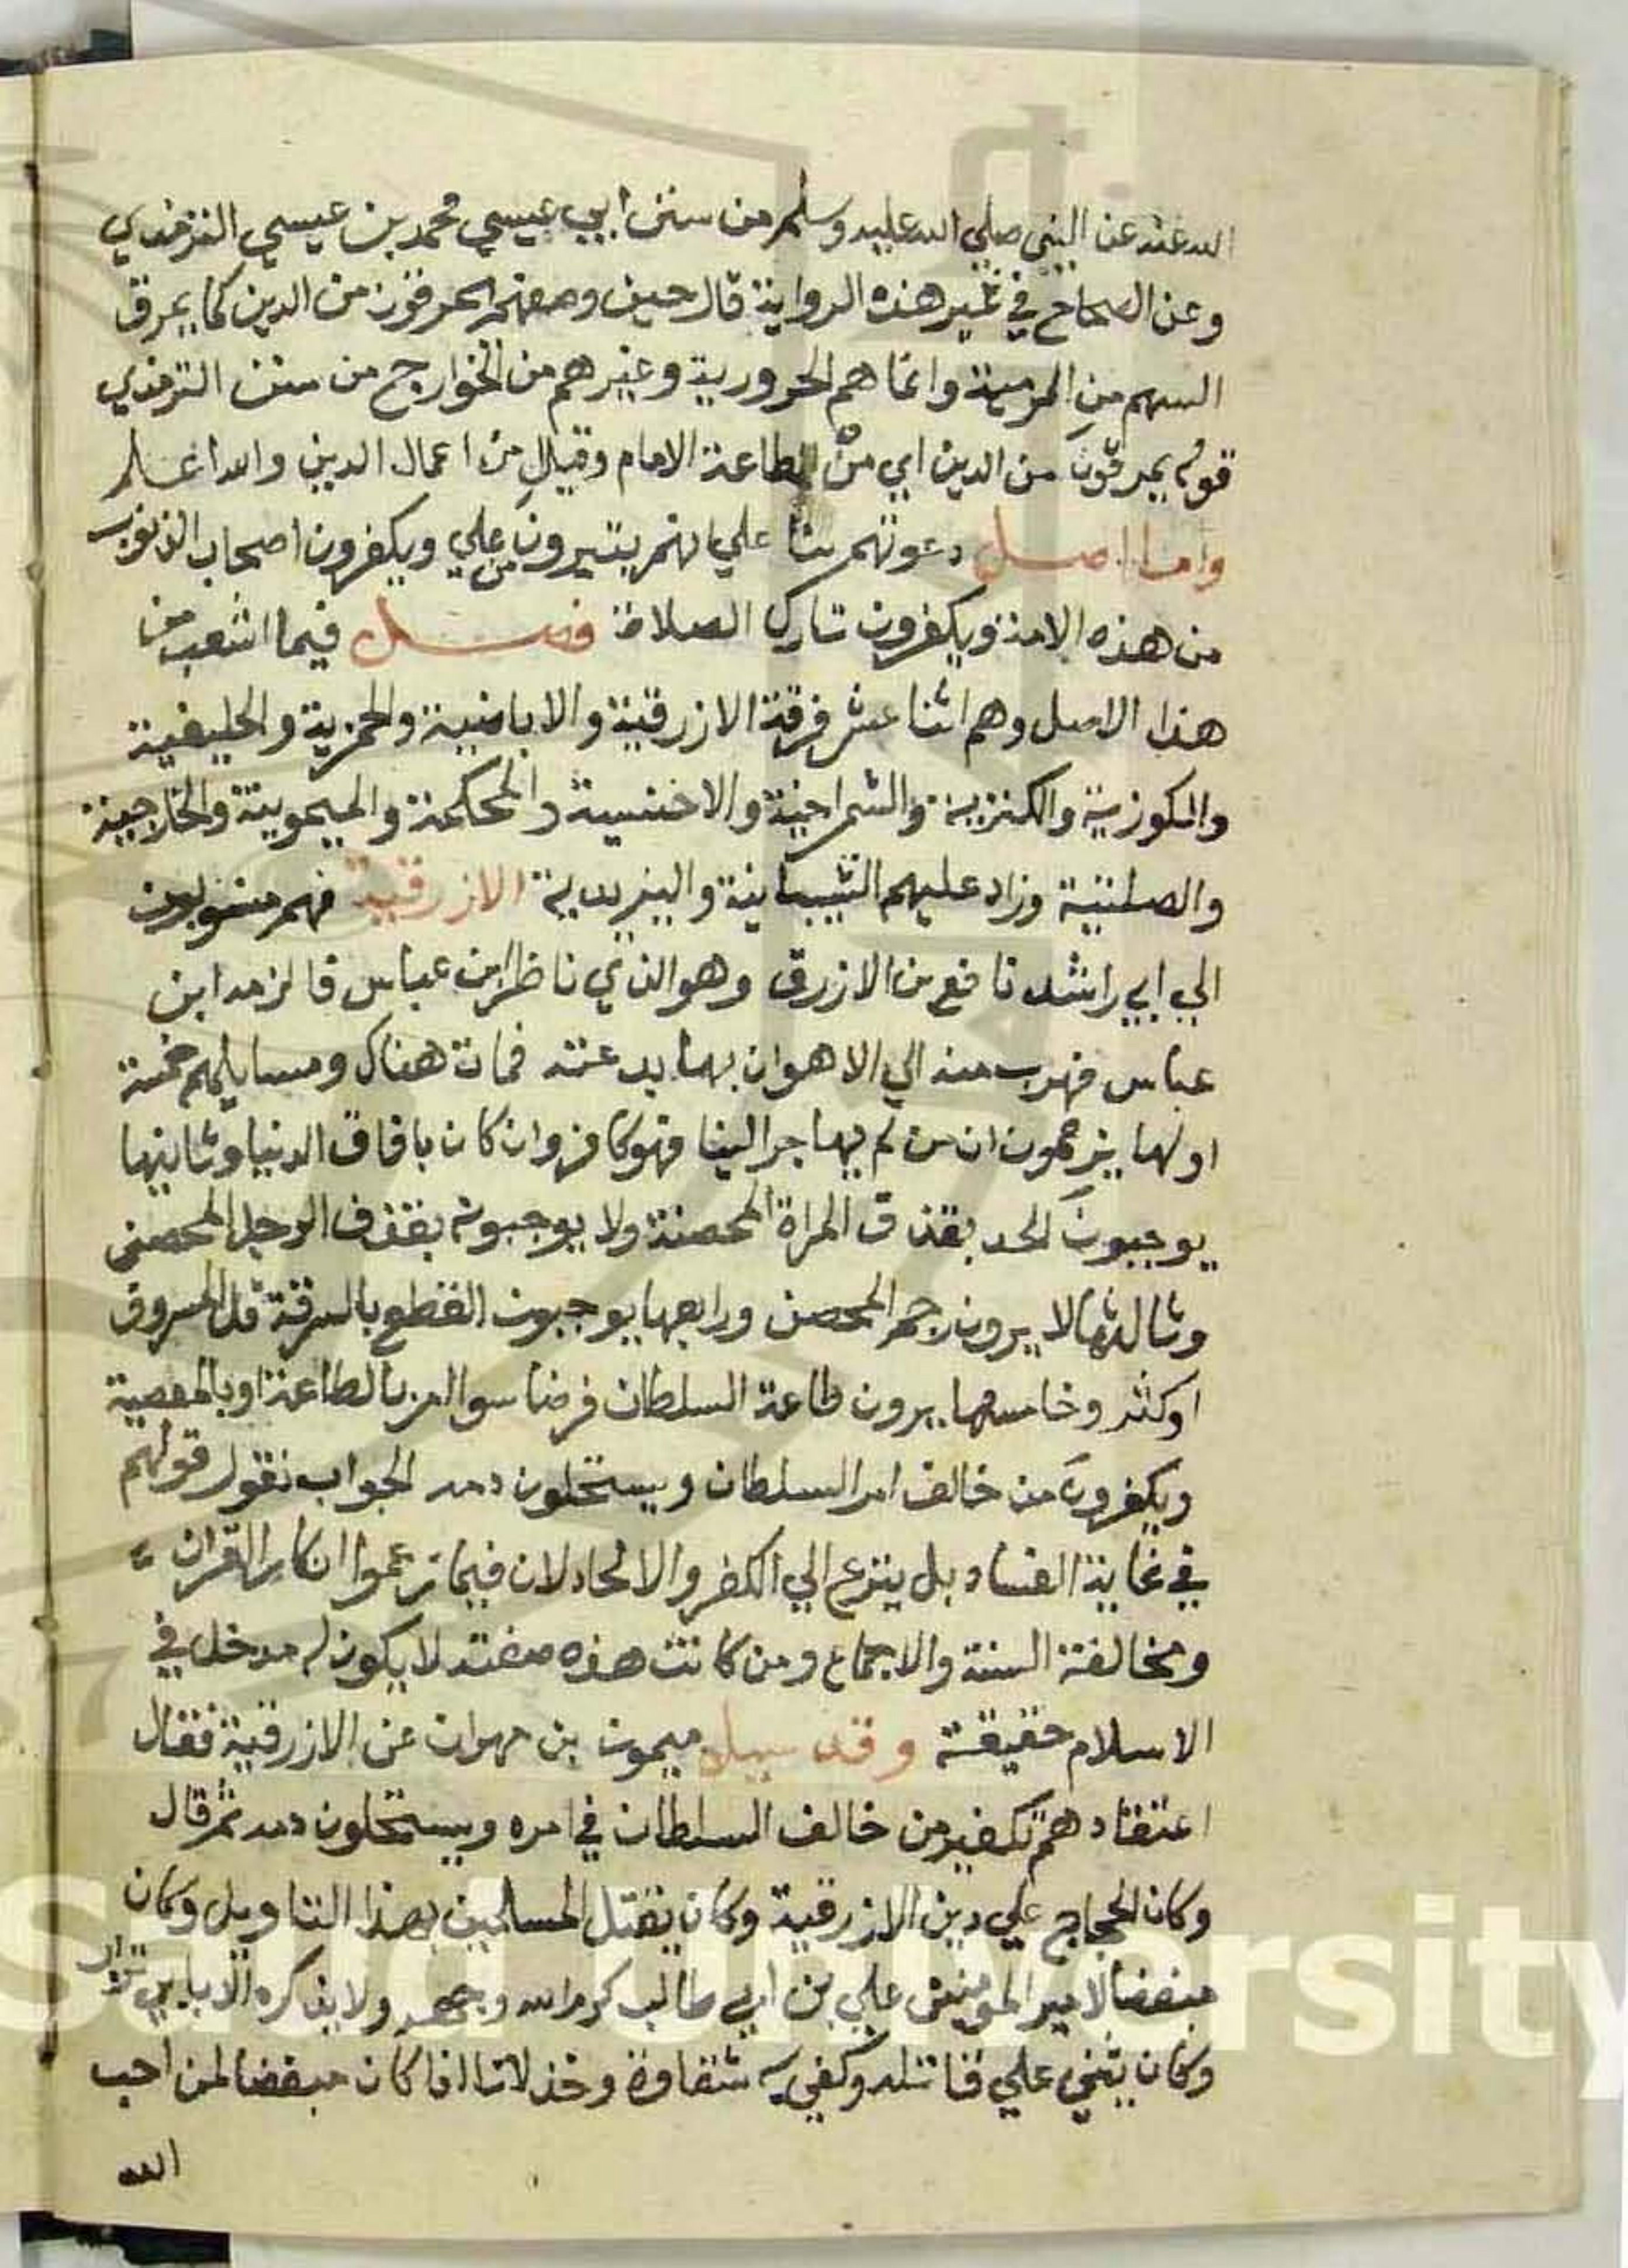 الله عنه عن النبي صلي الله عليه وسلم من سنن ابي عيسي محمد بن عيسي الترمذي
وعن الصحاح في غير هذه الرواية قال حين وصفهم يمرقون من الدين كما يمرق
السهم من الرمية وانما هم الحرورية وغيرهم من الخوارج من سنن الترمذي
قوله يمرقون من الدين اي من طاعة الامام وقيل من اعمال الدين والله اعلم
واما اصل دعوتهم بنا علي انهم يتبرون من علي ويكفرون اصحاب الذنوب
من هذه الامة ويكفرون تارك الصلاة فصل فيما انشعب من
هذا الاصل وهم اثنا عشر فرقة الازرقية والاباضية والحمزية والخليفية
والمكوزية والكنزية والشمراخية والاخنسية والمحكمة والميمونية والخارجية
والصلتية وزاد عليهم الشيبانية واليزيدية الازرقية فهم منسوبون
الي ابي راشد نافع بن الازرق وهو الذي ناظر ابن عباس فالزمه ابن
عباس فهرب منه الي الاهوان بها بدعته فمات هناك ومسايلهم خمسة
اولها يزعمون ان من لم يهاجر الينا فهو كافر وان كان بافاق الدنيا وثانيها
يوجبون الحد بقذف المراة المحصنة ولا يوجبونه بقذف الرجل المحصن
وثالثها لا يرون رجم المحصن ورابعها يوجبون القطع بالسرقة قل المسروق
اوكثر وخامسها يرون طاعة السلطان فرضا سوا امر بالطاعة او بالمعصية
ويكفرون من خالف امر السلطان ويستحلون دمه الجواب نقول قولهم
في غاية الفساد بل ينزع الي الكفر والالحاد لان فيما زعموا انكار القران
ومخالفة السنة والاجماع ومن كانت هذه صفته لا يكون له مدخل في
الاسلام حقيقة وقد سيل ميمون بن مهران عن الازرقية فقال
اعتقادهم تكفير من خالف السلطان في امره ويستحلون دمه ثم قال
وكان الحجاج علي دين الازرقية وكان يقتل المسلمين بهذا التاويل وكان
مبغضا لامير المومنين علي بن ابي طالب كرم الله وجهه ولا يذكره الا بابي تراب
وكان يثني علي قاتله وكفي به شقاوة وخذلانا اذا كان مبغضا لمن احب
الله